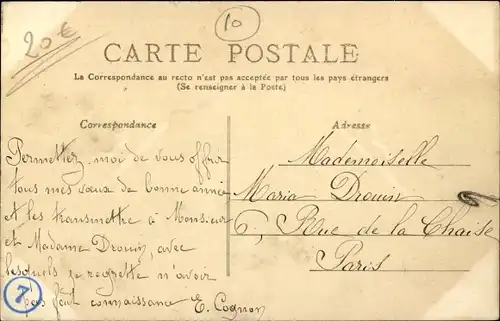 20€
10
CARTE POSTALE
La Correspondance au recto n'est pas acceptée par tous les pays étrangers
(Se renseigner à la Poste)
Correspondance
Permettez moi de vous offrir
tous mes vœux de bonne année
et les transmettre à Monsieur
et Madame Drouin, avec
lesquels je regrette n'avoir
pas fait connaissance E. Cognon
7
Adresse
Mademoiselle
Maria Drouin
6, Rue de la Chaise
Paris